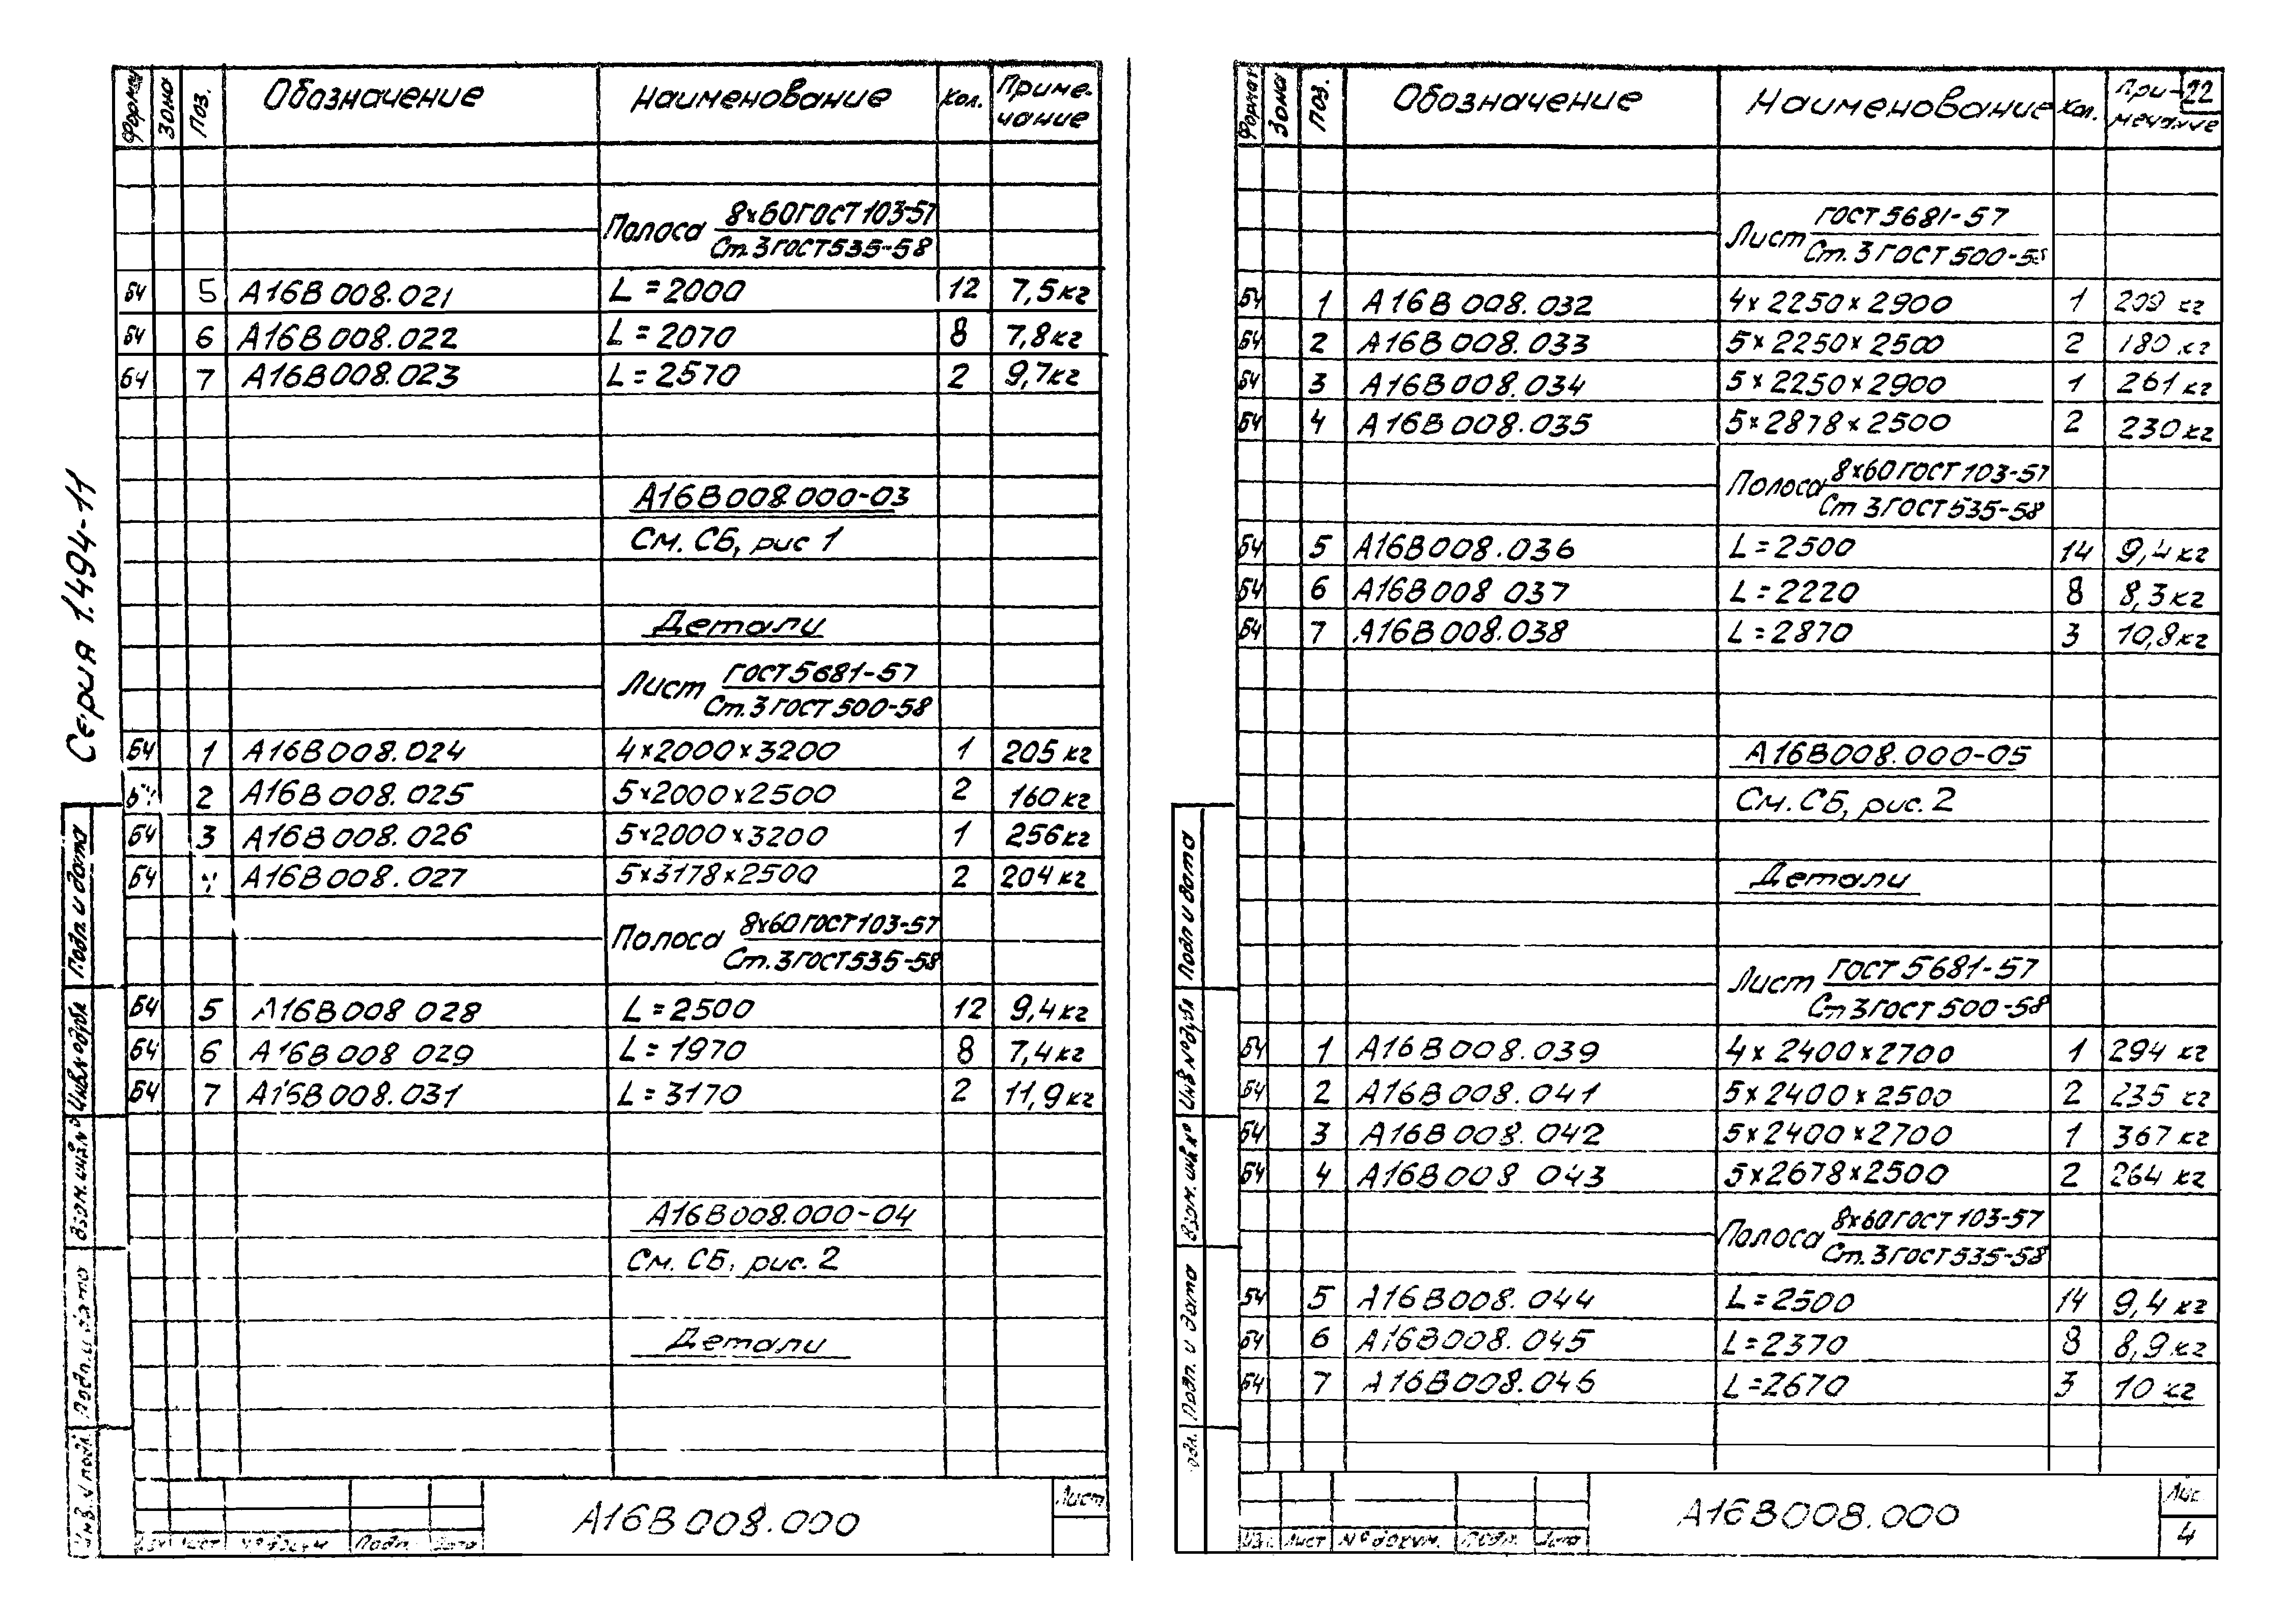 Серия 1.494-11
Формат Зона Поз. Обозначение Наименование Кол. Примечание
Полоса 8х60 ГОСТ 103-57
Ст.3 ГОСТ 535-58
БЧ 5 А16В008.021 L=2000 12 7,5кг
БЧ 6 А16В008.022 L=2070 8 7,8кг
БЧ 7 А16В008.023 L=2570 2 9,7кг
А16В008.000-03
См. СБ, рис 1
Детали
Лист ГОСТ 5681-57
Ст.3 ГОСТ 500-58
БЧ 1 А16В008.024 4х2000х3200 1 205 кг
БЧ 2 А16В008.025 5х2000х2500 2 160кг
БЧ 3 А16В008.026 5х2000х3200 1 256кг
БЧ А16В008.027 5х3178х2500 2 204кг
Полоса 8х60 ГОСТ 103-57
Ст.3 ГОСТ 535-58
БЧ 5 А16В008 028 L=2500 12 9,4кг
БЧ 6 А16В008 029 L=1970 8 7,4кг
БЧ 7 А16В008.031 L=3170 2 11,9кг
А16В008.000-04
См. СБ, рис. 2
Детали
Подп. и дата
Инв.№ дубл
Взам.инв.№
Подп. и дата
Инв.№ подл.
Изм Лист № докум Подп. Дата
А16В008.000
Лист
Формат Зона Поз. Обозначение Наименование Кол. Примечание
22
Лист ГОСТ 5681-57
Ст.3 ГОСТ 500-58
БЧ 1 А16В008.032 4х2250х2900 1 209 кг
БЧ 2 А16В008.033 5х2250х2500 2 180 кг
БЧ 3 А16В008.034 5х2250х2900 1 261 кг
БЧ 4 А16В008.035 5х2878х2500 2 230кг
Полоса 8х60 ГОСТ 103-57
Ст 3 ГОСТ 535-58
БЧ 5 А16В008.036 L=2500 14 9,4кг
БЧ 6 А16В008 037 L=2220 8 8,3кг
БЧ 7 А16В008.038 L=2870 3 10,8кг
А16В008.000-05
См. СБ, рис. 2
Детали
Лист ГОСТ 5681-57
Ст 3 ГОСТ 500-58
БЧ 1 А16В008.039 4х2400х2700 1 294 кг
БЧ 2 А16В008.041 5х2400х2500 2 235 кг
БЧ 3 А16В008.042 5х2400х2700 1 367 кг
БЧ 4 А16В008 043 5х2678х2500 2 264 кг
Полоса 8х60 ГОСТ 103-57
Ст.3 ГОСТ 535-58
БЧ 5 А16В008.044 L=2500 14 9,4 кг
БЧ 6 А16В008.045 L=2370 8 8,9 кг
БЧ 7 А16В008.046 L=2670 3 10 кг
Подп и дата
Инв №дубл
Взам. инв.№
Подп. и дата
одл.
Изм. Лист № докум. Подп. Дата
А16В008.000
Лис
4